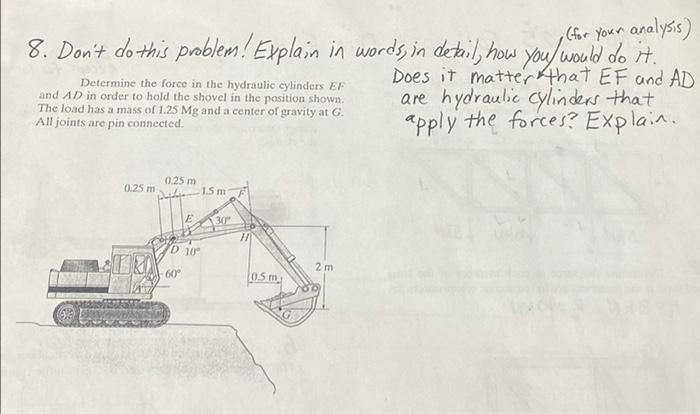 8. Don't do this problem! Explain in words, in detail, how you would do it.
(for your analysis)
Does it matter that EF and AD
are hydraulic cylinders that
apply the forces? Explain.
Determine the force in the hydraulic cylinders EF
and AD in order to hold the shovel in the position shown.
The load has a mass of 1.25 Mg and a center of gravity at G.
All joints are pin connected.
0.25 m
0.25 m
1.5 m
F
E
30°
H
D
10°
60°
0.5 m
2 m
G